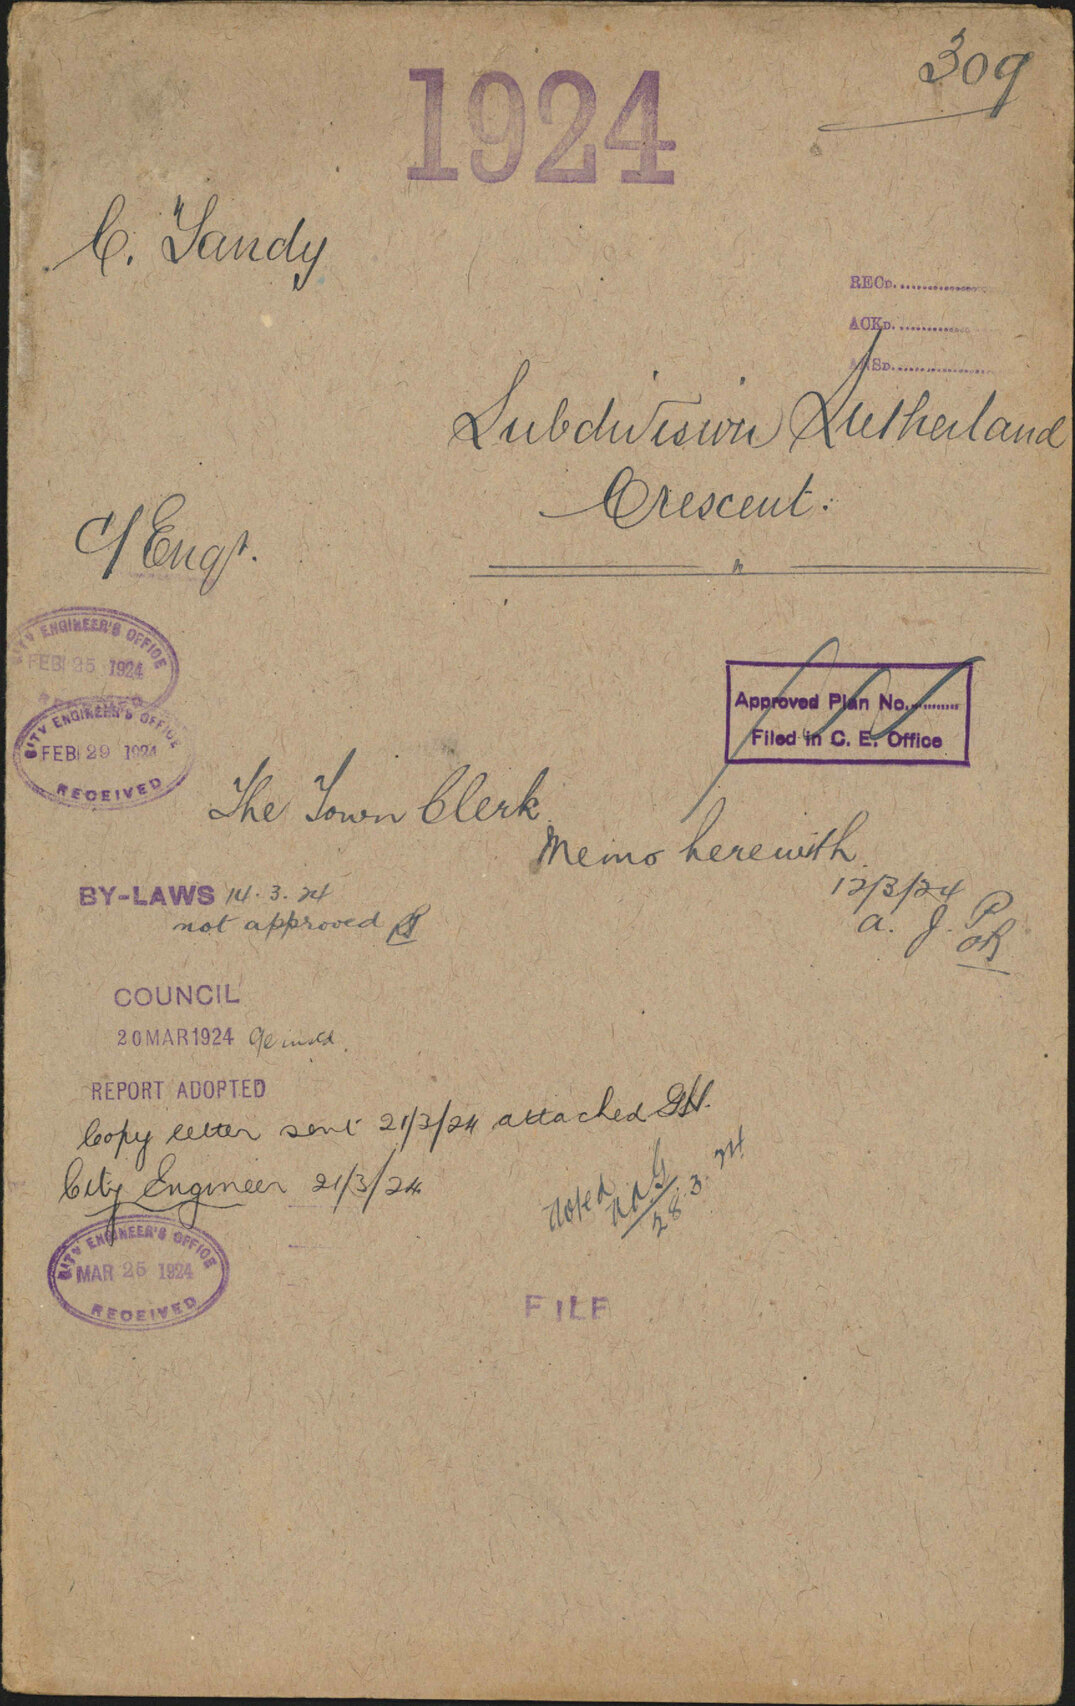 309
1924
C. Tandy
RECD.
ACKD.
ANSD.
Subdivision Sutherland
Crescent.
C/Engr.
CITY ENGINEER'S OFFICE
FEB 25 1924
CITY ENGINEER'S OFFICE
FEB 29 1924
RECEIVED
Approved Plan No.
Filed in C. E. Office
The Town Clerk
Memo herewith
12/3/24
A. J. P
BY-LAWS 14.3.24
not approved
COUNCIL
20 MAR 1924
REPORT ADOPTED
Copy letter sent 21/3/24 attached
City Engineer 21/3/24
Noted
28.3.24
CITY ENGINEER'S OFFICE
MAR 25 1924
RECEIVED
FILE